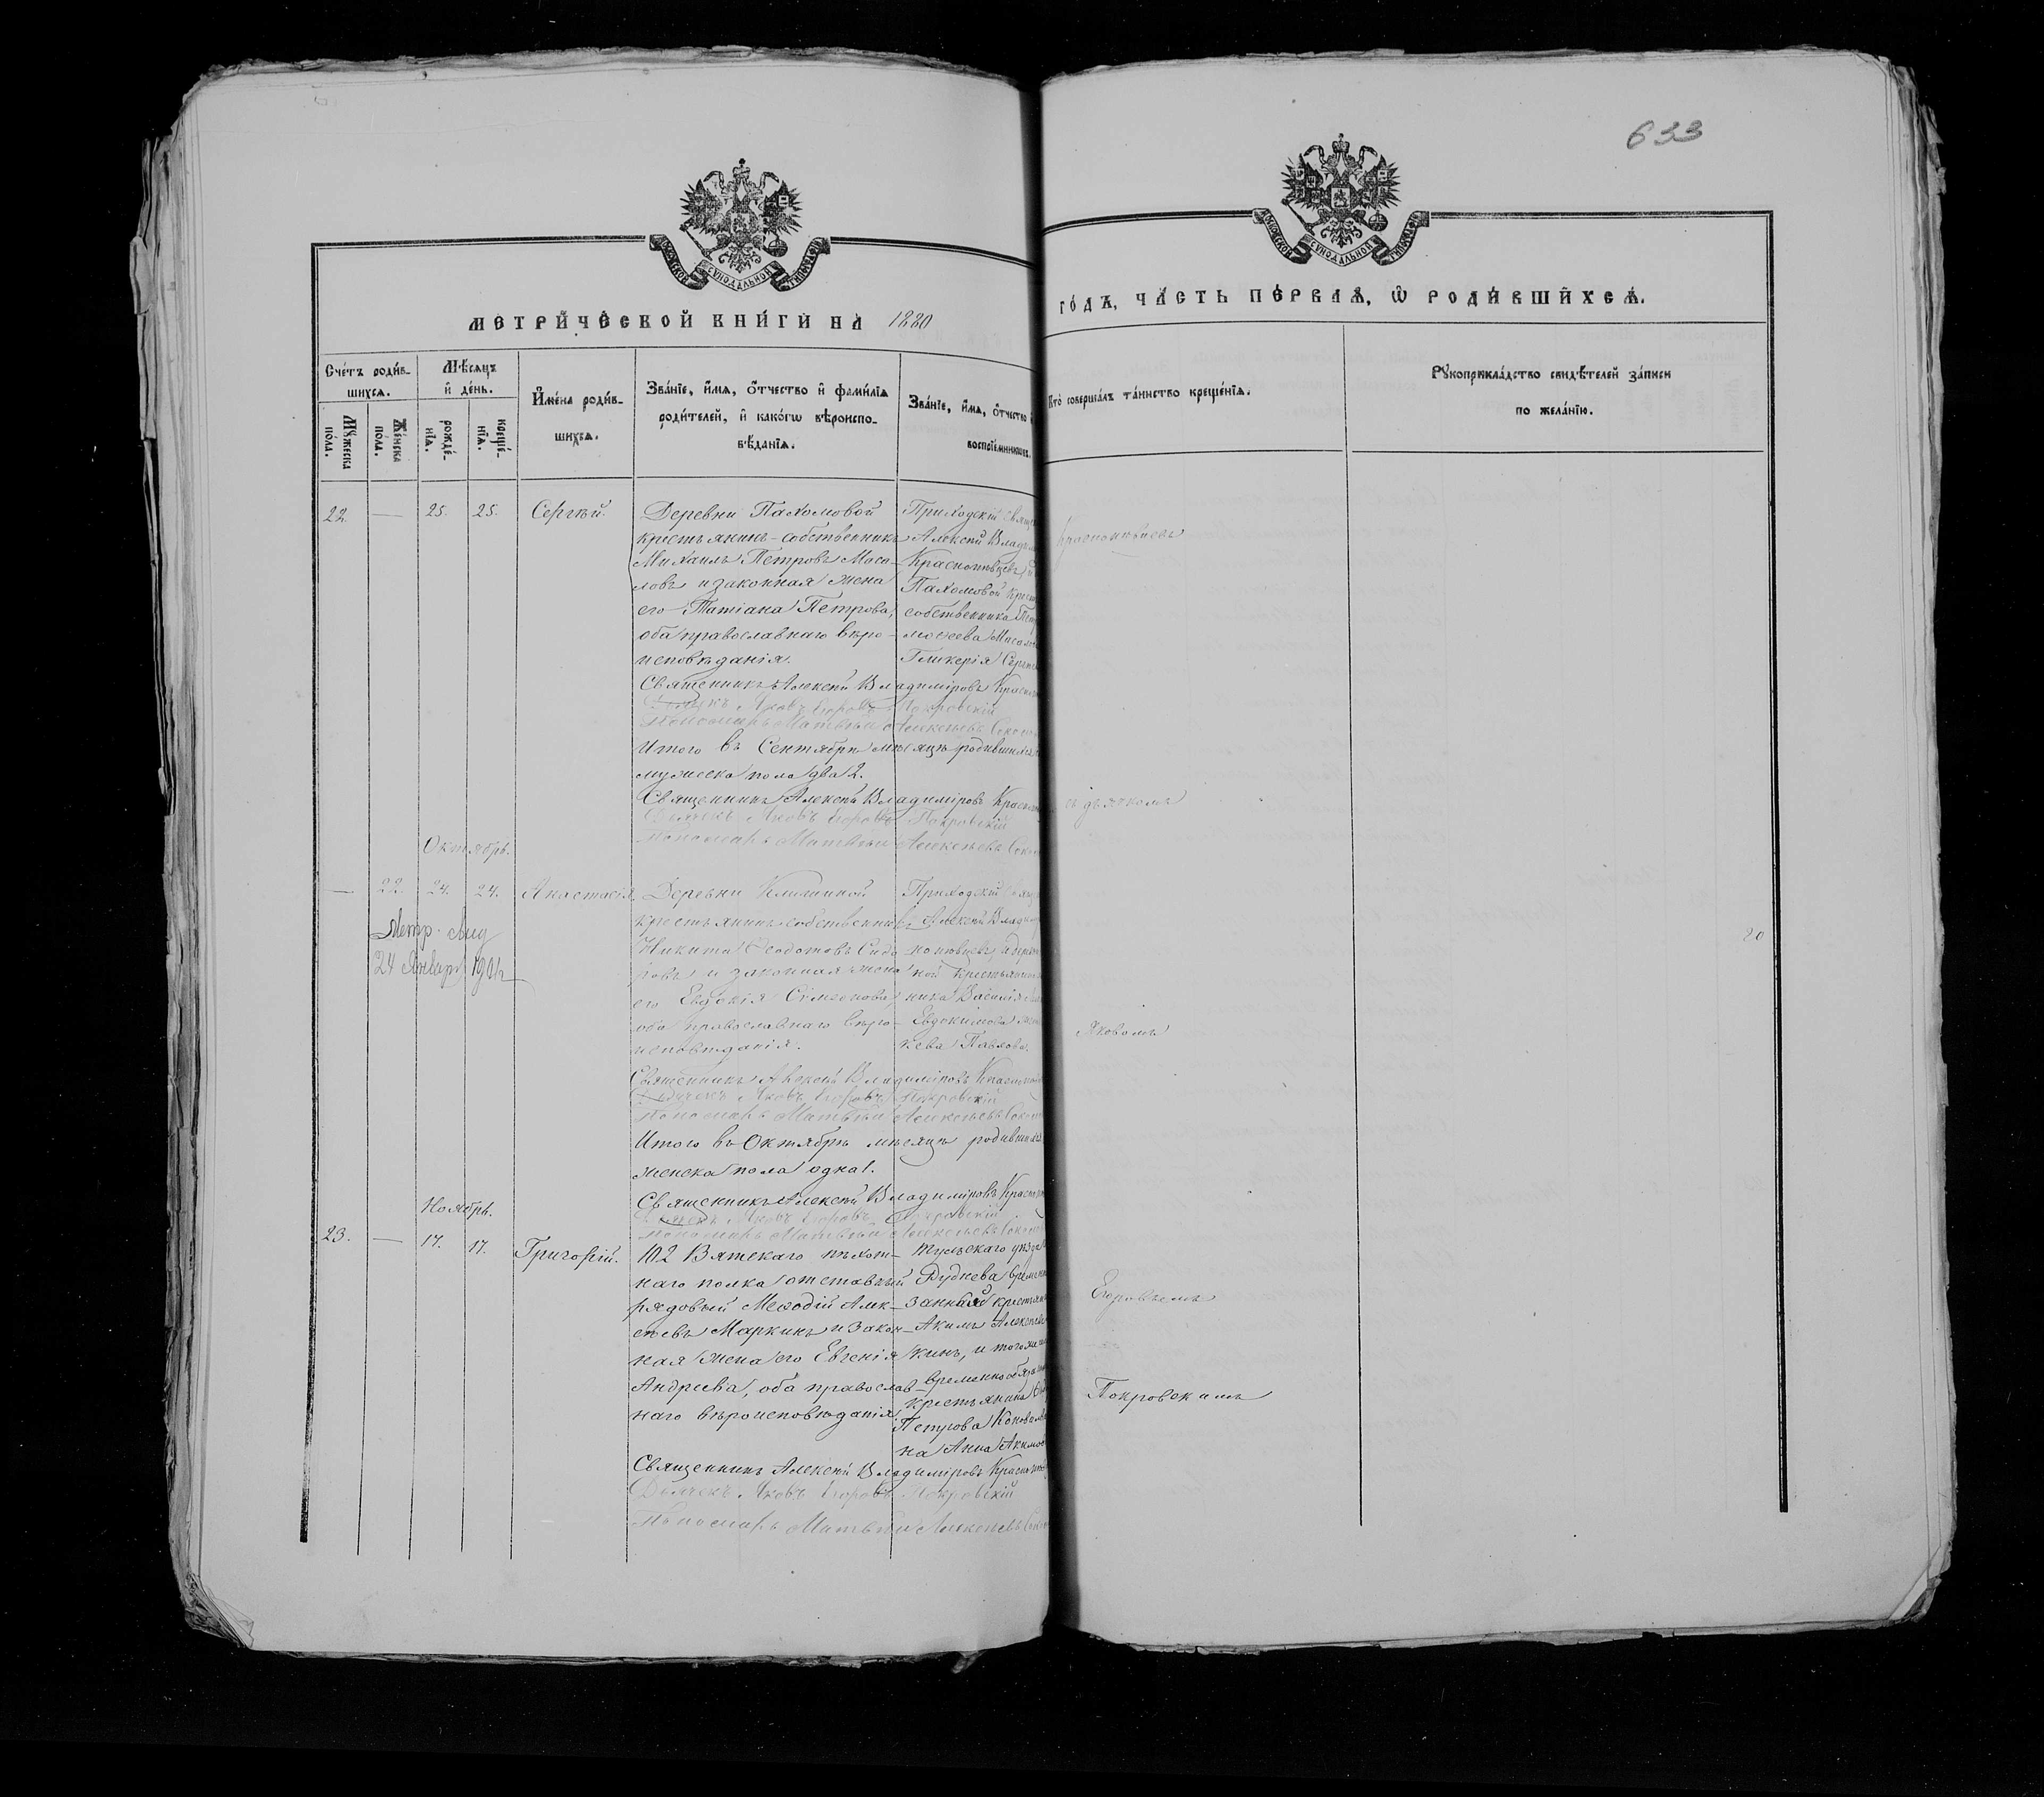 633
МОСКОВСКОЙ СѴНОДАЛЬНОЙ ТИПОГРАФІИ
МОСКОВСКОЙ СѴНОДАЛЬНОЙ ТИПОГРАФІИ
МЕТРИ́ЧЕСКОЙ КНИ́ГИ НА 1880
ГО́ДЪ, ЧА́СТЬ ПЕ́РВАѦ, Ѡ РОДИ́ВШИХСѦ.
Сче́тъ роди́в-
шихсѧ.
Мѣ́сяцъ
и҆ де́нь.
Мꙋ́жеска
по́ла.
Же́нска
по́ла.
рожде́-
нїѧ.
креще́-
нїѧ.
И҆мена̀ роди́в-
шихсѧ.
Зва́нїе, и҆́мѧ, ѻ҆́тчество и҆ фами́лїѧ
роди́телей, и҆ како́гѡ вѣроиспо-
вѣ́данїѧ.
Зва́нїе, и҆́мѧ, ѻ҆́тчество
воспрїе́мниковъ.
Кто̀ соверша́лъ та́инство креще́нїѧ.
Рꙋкоприкла́дство свидѣ́телей за́писи
по жела́нїю.
22. — 25. 25. Сергѣй.
Деревни Пахомовой
крестьянинъ-собственникъ
Михаилъ Петровъ Маса-
ловъ и законная жена
его Татіана Петрова,
оба православнаго вѣро-
исповѣданія.
Приходскій Свяще
Алексѣй Влади
Краснопѣвцевъ, и
Пахомовой крест
собственника Пет
Моисеева
Гликерія Сергѣе
Краснопѣвцевъ
Священникъ Алексѣй Владиміровъ Красно
Дьячекъ Яковъ Егоровъ Покровскій
Пономарь Матвѣй Алексѣевъ Соко
Итого въ Сентябрѣ мѣсяцѣ родившихся
мужеска пола два 2.
Священникъ Алексѣй Владиміровъ Красно
Дьячекъ Яковъ Егоровъ Покровскій
Пономарь Матвѣй Алексѣевъ Соко
съ дьячкомъ
Октябрь.
— 22. 24. 24. Анастасія.
Метр.
24 Января
Деревни
крестьянинъ собственникъ
Никита Ѳеодотовъ Сидо
ровъ и законная жена
его Евдокія Сѵмеонова,
оба православнаго вѣро-
исповѣданія.
Приходскій Свяще
Алексѣй Влади
нопѣвцевъ, и дерев
ной крестьянина
ника Василія
Евдокимова
Павлова.
20
Яковомъ
Священникъ Алексѣй Владиміровъ Краснопѣ
Дьячекъ Яковъ Егоровъ Покровскій
Пономарь Матвѣй Алексѣевъ Соко
Итого въ Октябрѣ мѣсяцѣ родившихся
женска пола одна 1.
Священникъ Алексѣй Владиміровъ Красно
Дьячекъ Яковъ Егоровъ Покровскій
Пономарь Матвѣй Алексѣевъ Соко
Ноябрь.
23. — 17. 17. Григорій.
102 Вятскаго пѣхот-
наго полка отставный
рядовый Меѳодій Алек-
сѣевъ Маркинъ и закон-
ная жена его Евгенія
Андреева, оба православ-
наго вѣроисповѣданія.
Тульскаго уѣзда
Руднева времен
занный крестьян
Акимъ Алексѣев
кинъ, и того же
временно обяз
крестьянина
Петрова Коновал
на Анна Акимов
Егоровымъ
Покровскимъ
Священникъ Алексѣй Владиміровъ Краснопѣ
Дьячекъ Яковъ Егоровъ Покровскій
Пономарь Матвѣй Алексѣевъ Соко